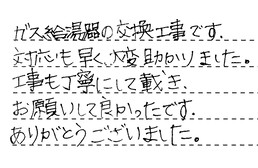 ガス給湯器の交換工事です.
対応も早く大変助かりました。
工事も丁寧にして戴き、
お願いして良かったです.
ありがとうございました。